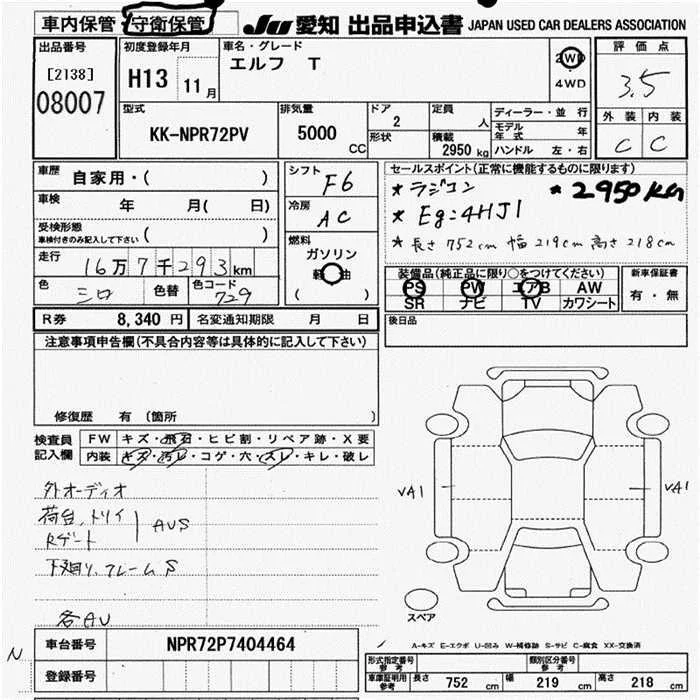 車内保管 守衛保管 JU 愛知 出品申込書 JAPAN USED CAR DEALERS ASSOCIATION
出品番号 [2138] 08007
初度登録年月 H13 11月
車名・グレード エルフ T
2WD 4WD
評価点 3.5
外装 内装
C C
型式 KK-NPR72PV
排気量 5000 CC
ドア 2
形状
定員 人
積載 2950 kg
ディーラー・並行
モデル年式 年
ハンドル 左・右
車歴 自家用・( )
車検 年 月( 日)
受検形態 車検付きのみ記入して下さい ( )
走行 16万7千293km
色 シロ 色替 色コード 729
シフト F6
冷房 AC
燃料 ガソリン
軽油
( )
セールスポイント(正常に機能するものに限ります)
* ラジコン * 2950KG
* Eg:4HJ1
* 長さ752cm 幅219cm 高さ218cm
装備品(純正品に限り○をつけてください)
PS PW エアB AW
SR ナビ TV カワシート
新車保証書
有・無
R券 8,340円 名変通知期限 月 日
後日品
注意事項申告欄(不具合内容等は具体的に記入して下さい)
修復歴 有 (箇所 )
検査員記入欄
FW キズ・飛石・ヒビ割・リペア跡・X要
内装 キズ・汚レ・コゲ・穴・スレ・キレ・破レ
外オーディオ
荷台、トリイ
Rゲート AUS
下廻り、フレームS
各AU
VA1
VA1
スペア
A-キズ E-エクボ U-凹み W-補修跡 S-サビ C-腐食 XX-交換済
N
車台番号 NPR72P7404464
登録番号
形式指定番号 参考
類別区分番号 参考
車庫証明用参考 長さ 752 cm 幅 219 cm 高さ 218 cm